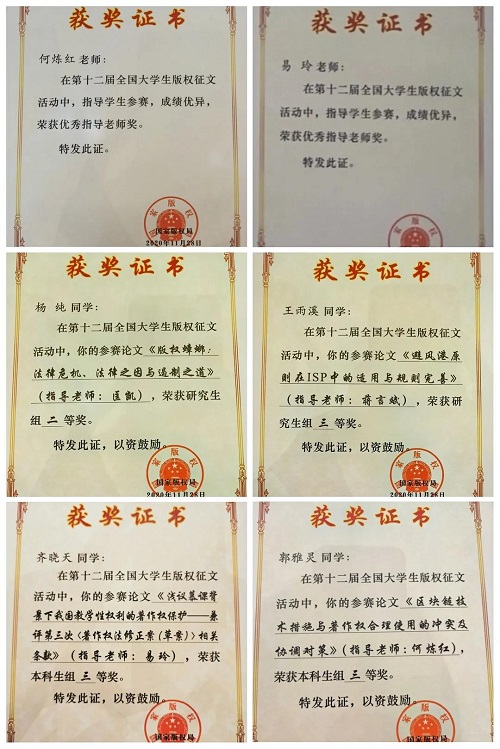 获奖证书
何炼红 老师：
在第十二届全国大学生版权征文
活动中，指导学生参赛，成绩优异，
荣获优秀指导老师奖。
特发此证。
国家版权局
2020年11月28日
获奖证书
易 玲 老师：
在第十二届全国大学生版权征文
活动中，指导学生参赛，成绩优异，
荣获优秀指导老师奖。
特发此证。
国家版权局
获奖证书
杨 纯 同学：
在第十二届全国大学生版权征文
活动中，你的参赛论文《版权蟑螂：
法律危机、法律之因与遏制之道》
（指导老师：匡凯），荣获研究生
组 二 等奖。
特发此证，以资鼓励。
国家版权局
2020年11月28日
获奖证书
王雨溪 同学：
在第十二届全国大学生版权征文
活动中，你的参赛论文《避风港原
则在ISP中的适用与规则完善》
（指导老师：蒋言斌），荣获研究
生组 三 等奖。
特发此证，以资鼓励。
国家版权局
2020年11月28日
获奖证书
齐晓天 同学：
在第十二届全国大学生版权征文
活动中，你的参赛论文《浅议慕课背
景下我国教学性权利的著作权保护——兼
评第三次〈著作权法修正案（草案）〉相关
条款》（指导老师：易玲），荣获
本科生组 三 等奖。
特发此证，以资鼓励。
国家版权局
获奖证书
郭雅灵 同学：
在第十二届全国大学生版权征文
活动中，你的参赛论文《区块链技
术措施与著作权合理使用的冲突及
协调对策》（指导老师：何炼红），
荣获本科生组 三 等奖。
特发此证，以资鼓励。
国家版权局